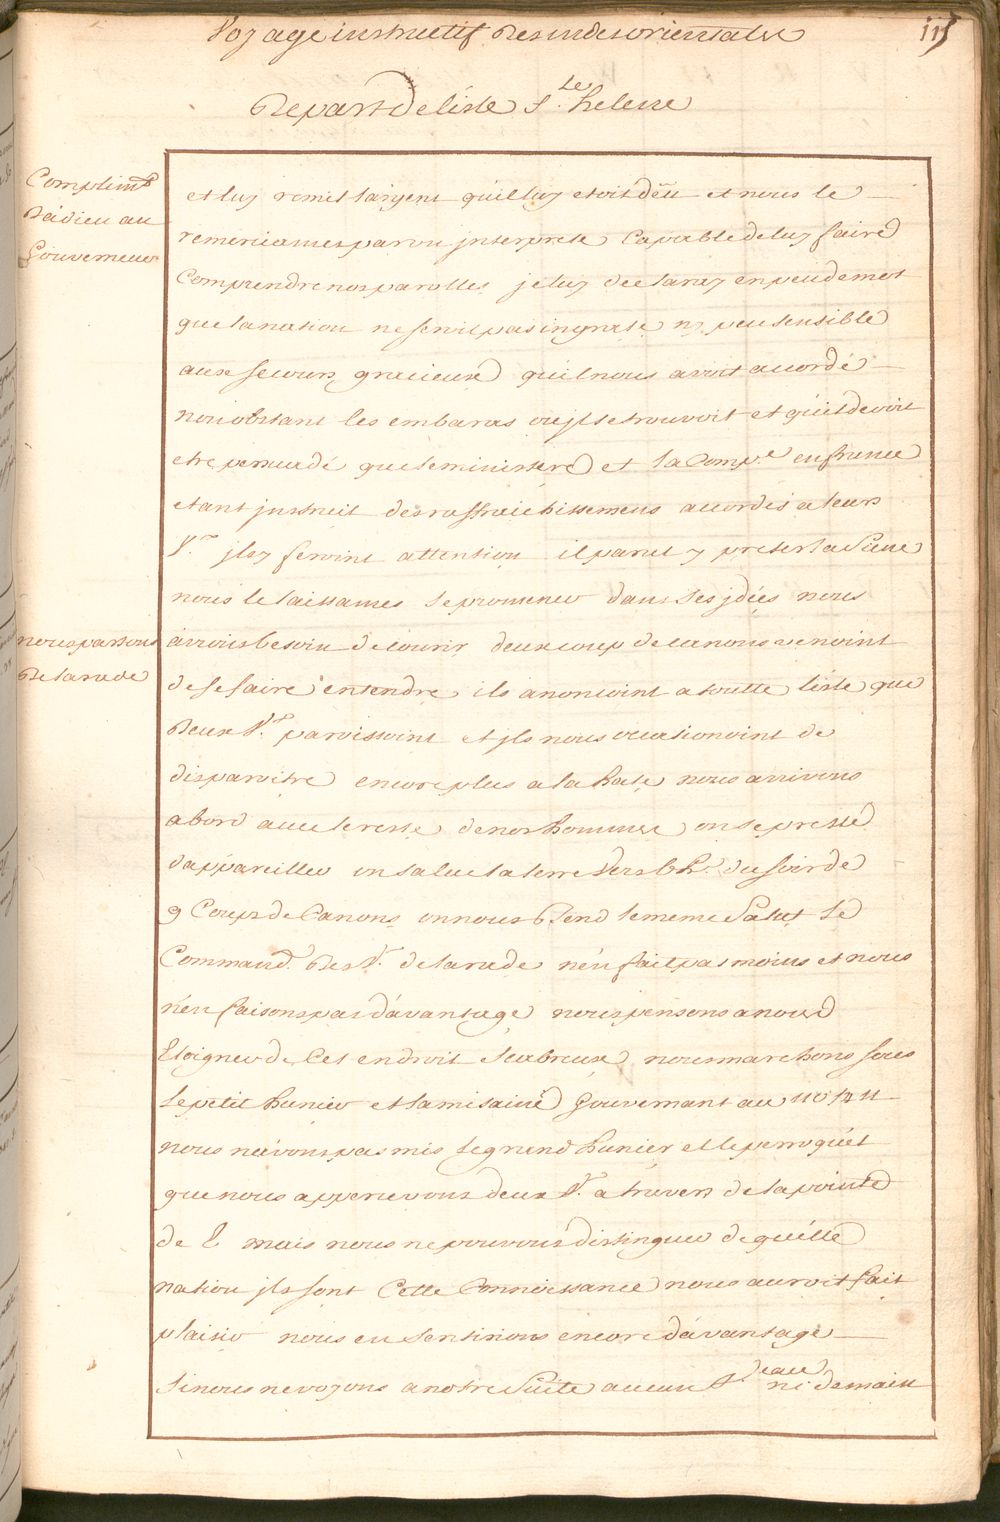 Voyage instructif Des indes orientalles
115
Depart De l'isle S.te helene
Complim.t
D'adieu au
Gouverneur
et luy remit l'argent quil luy etoit deu et nous le
remerciames par un jnterprete Capable de luy faire
Comprendre nos parolles je luy declaray en peu de mot
que la nation ne seroit pas ingrate ny peu sensible
aux secours gracieux quil nous avoit accordé
nonobstant les embaras ou jl se trouvoit et quil devoit
etre persuadé que le ministere et la Comp.e en france
etant jnstruit des raffraichissemens accordés a leurs
V.x jls y feroint attention il parut y preter la Siene
nous le laissames se promener dans ses jdées nous
nous partons
De la rade
avions besoin de courir deux coup de canons venoint
de se faire entendre ils anoncoint a toutte l'isle que
Deux V.x paroissoint et jls nous occationoint de
disparoitre encore plus a la hate nous arrivons
abord avec le reste de nos hommes on se presse
d'appareiller on salue la terre vers 6 h.s du soir de
9 Coups de Canons on nous Rend le meme Salut le
Command.t Des V.x de la rade n'en fait pas moins et nous
n'en faisons pas d'avantage nous pensons a nous
Eloigner de Cet endroit scabreux nous marchons sous
le petit hunier et la misaine Gouvernant au no ¼ n
nous n'avons pas mis le grand hunier et le perroquet
que nous appercevons deux V.x a travers de la pointe
de E mais nous ne pouvons distinguer de quelle
nation jls sont Cette Connoissance nous auroit fait
plaisir nous en sentirions encore d'avantage
si nous ne voyons a notre Suite aucun V.eau ni demain